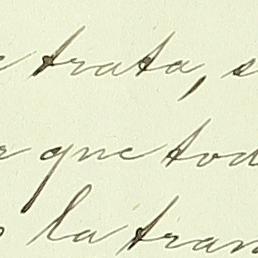 trata, s
que tod
la tran